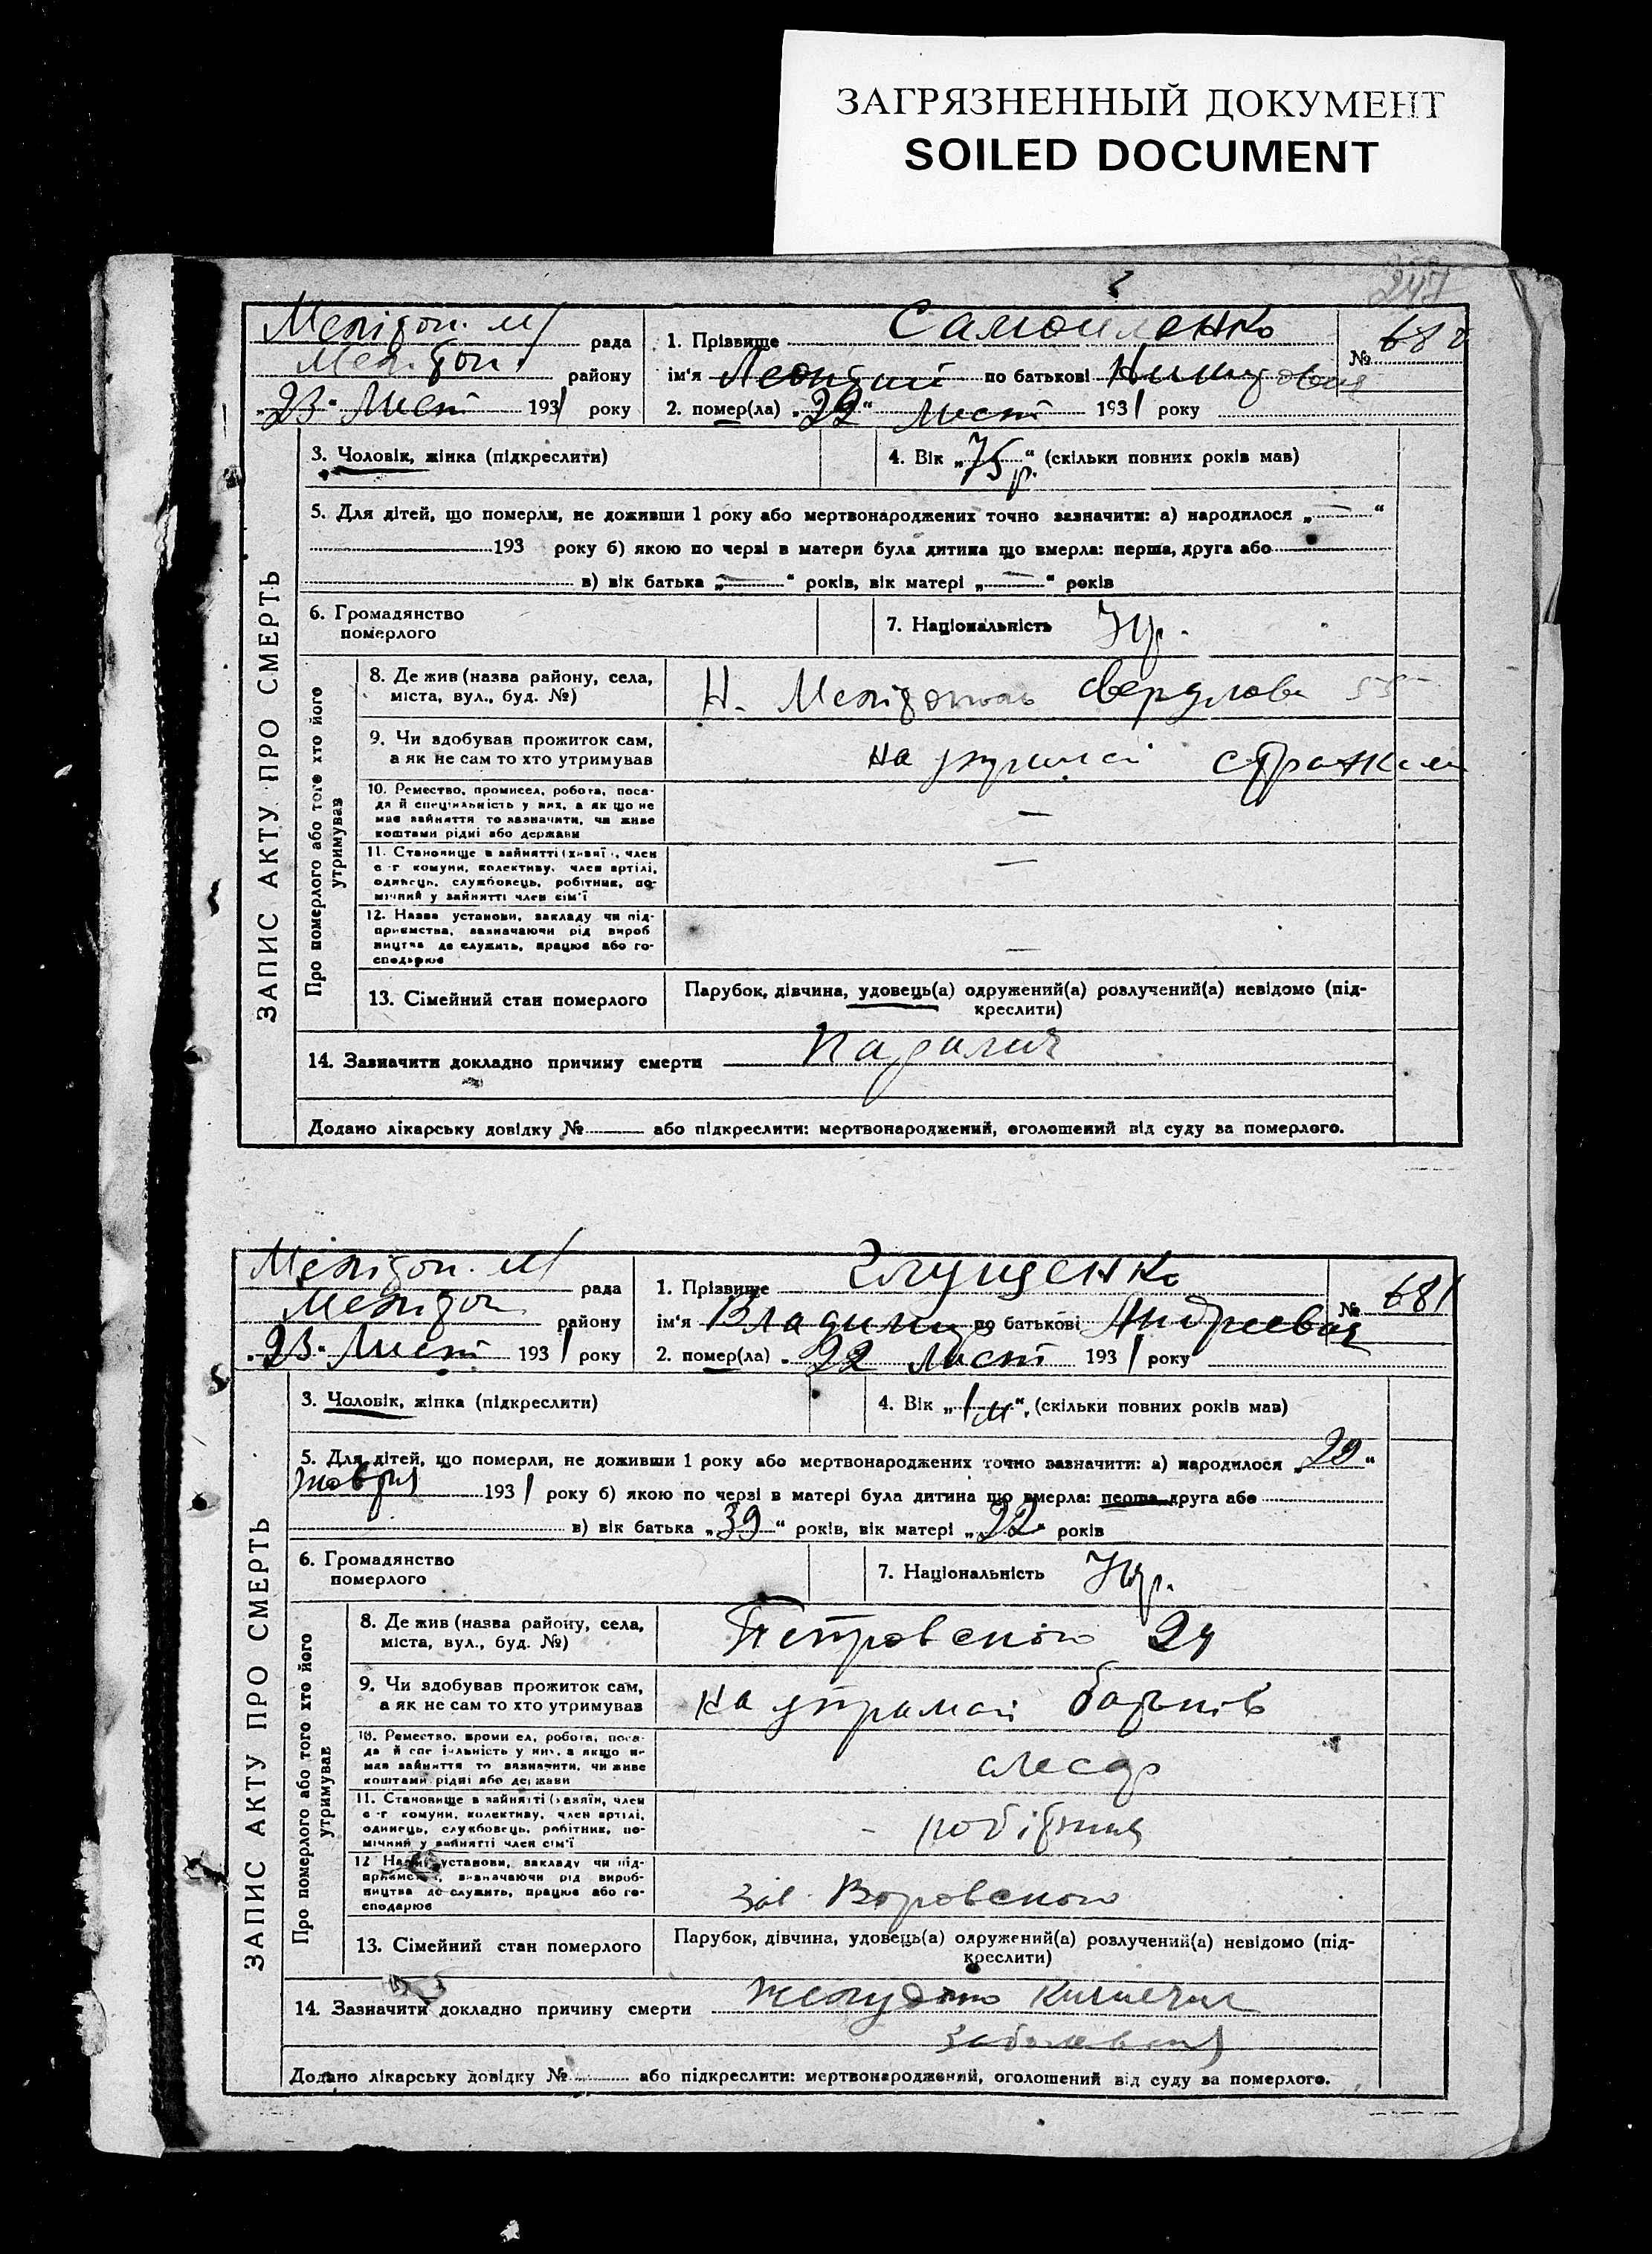 ЗАГРЯЗНЕННЫЙ ДОКУМЕНТ
SOILED DOCUMENT
247
рада
району
"23" Лист 1931 року
1. Прізвище Самойленко
№ 680
ім'я по батькові
2. помер(ла) "22" Лист 1931 року
ЗАПИС АКТУ ПРО СМЕРТЬ
3. Чоловік, жінка (підкреслити)
4. Вік „75 р.“ (скільки повних років мав)
5. Для дітей, що померли, не доживши 1 року або мертвонароджених точно зазначити: а) народилося „—“
193 року б) якою по черзі в матери була дитина що вмерла: перша, друга або
в) вік батька „—“ років, вік матері „—“ років
6. Громадянство
померлого
7. Національність Укр.
Про померлого або того хто його
утримував
8. Де жив (назва району, села,
міста, вул., буд. №)
Н. Мелітополь Свердлова 55
9. Чи здобував прожиток сам,
а як не сам то хто утримував
на
10. Ремество, промисел, робота, поса-
да й спеціяльність у них, а як що не
має зайняття то зазначити, чи живе
коштами рідні або держави
—
11. Становище в зайнятті (хазяїн, член
с-г комуни, колективу, член артілі,
одинець, службовець, робітник, по-
мічний у зайнятті член сім'ї
—
12. Назва установи, закладу чи під-
приємства, зазначаючи рід вироб
ництва де служить, працює або го-
сподарює
—
13. Сімейний стан померлого
Парубок, дівчина, удовець(а) одружений(а) розлучений(а) невідомо (під-
креслити)
14. Зазначити докладно причину смерти
Додано лікарську довідку № або підкреслити: мертвонароджений, оголошений від суду за померлого.
рада
району
"23" Лист 1931 року
1. Прізвище Глущенко
№ 681
ім'я Владимир по батькові Андреевич
2. помер(ла) "22" Лист 1931 року
ЗАПИС АКТУ ПРО СМЕРТЬ
3. Чоловік, жінка (підкреслити)
4. Вік „1 м“, (скільки повних років мав)
5. Для дітей, що померли, не доживши 1 року або мертвонароджених точно зазначити: а) народилося „20“
1931 року б) якою по черзі в матері була дитина що вмерла: перша друга або
в) вік батька „39“ років, вік матері „22“ років
6. Громадянство
померлого
7. Національність Укр.
Про померлого або того хто його
утримував
8. Де жив (назва району, села,
міста, вул., буд. №)
Петровского 24
9. Чи здобував прожиток сам,
а як не сам то хто утримував
на утриман батьків
10. Ремество, промисел, робота, поса-
да й спеціяльність у них, а якщо не
має зайняття то зазначити, чи живе
коштами рідні або держави
слесар
11. Становище в зайнятті (хазяїн, член
с-г комуни, колективу, член артілі,
одинець, службовець, робітник, по-
мічний у зайнятті член сім'ї
- робітник
12 Назва установи, закладу чи під-
приємства, зазначаючи рід вироб-
ництва де служить, працює або го-
сподарює
Зав. Воровского
13. Сімейний стан померлого
Парубок, дівчина, удовець(а) одружений(а) розлучений(а) невідомо (під-
креслити)
14. Зазначити докладно причину смерти Желудочно
Додано лікарську довідку № або підкреслити: мертвонароджений, оголошений від суду за померлого.